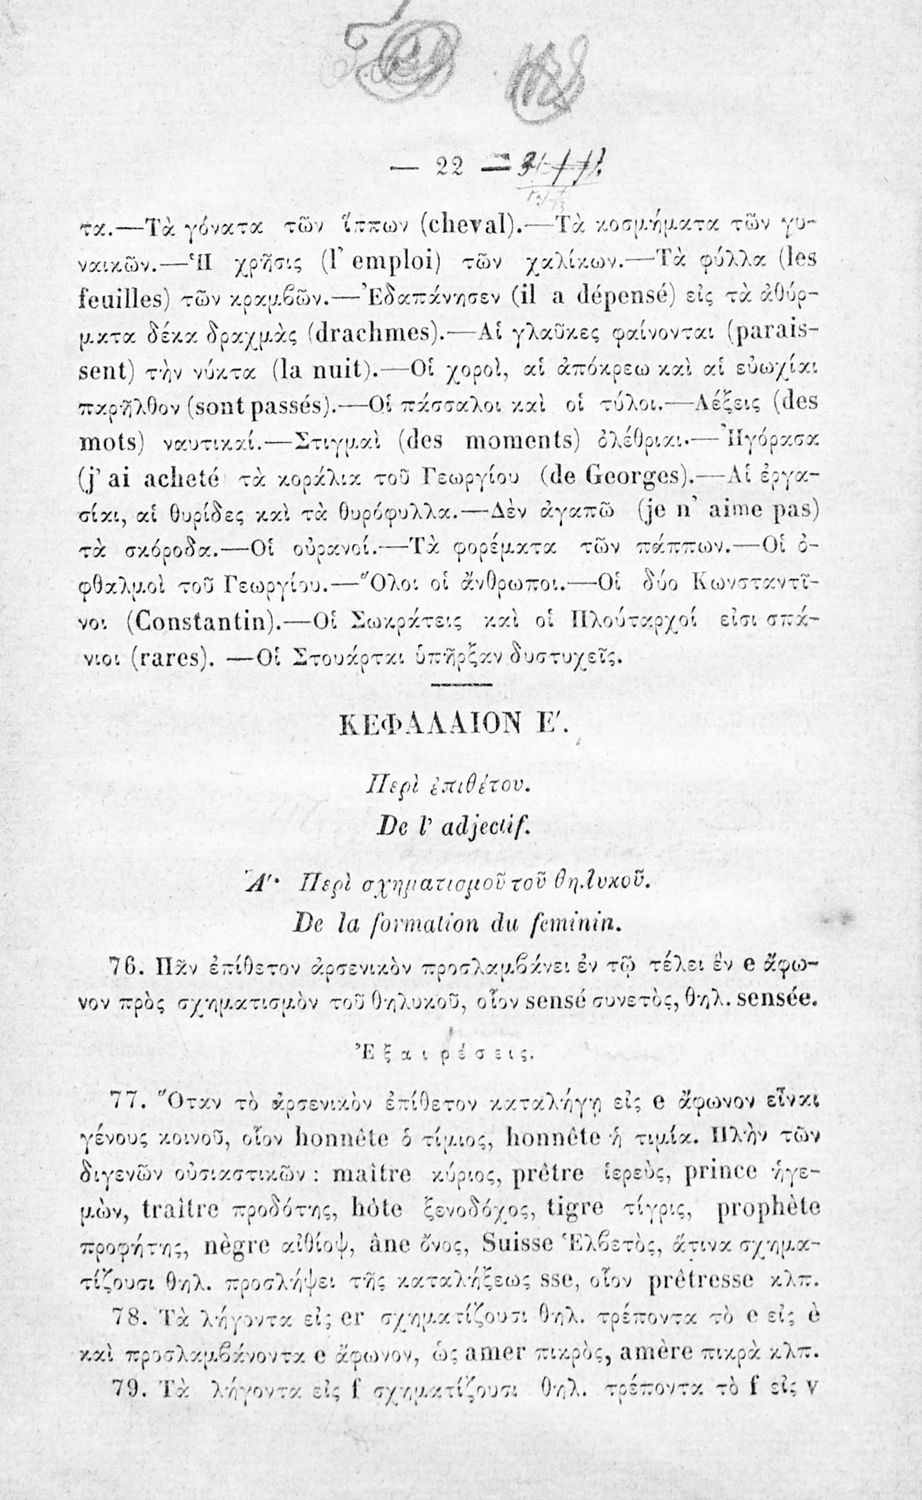 — 22 —
τα.—Τὰ γόνατα τῶν ἵππων (cheval).—Τὰ κοσμήματα τῶν γυ-
ναικῶν.—Ἡ χρῆσις (l' emploi) τῶν χαλίκων.—Τὰ φύλλα (les
feuilles) τῶν κραμβῶν.—Ἐδαπάνησεν (il a dépensé) εἰς τὰ ἀθύρ-
ματα δέκα δραχμὰς (drachmes).—Αἱ γλαῦκες φαίνονται (parais-
sent) τὴν νύκτα (la nuit).—Οἱ χοροὶ, αἱ ἀπόκρεω καὶ αἱ εὐωχίαι
παρῆλθον (sont passés).—Οἱ πάσσαλοι καὶ οἱ τύλοι.—Λέξεις (des
mots) ναυτικαί.—Στιγμαὶ (des moments) ὀλέθριαι.—Ἠγόρασα
(j' ai acheté τὰ κοράλια τοῦ Γεωργίου (de Georges).—Αἱ ἐργα-
σίαι, αἱ θυρίδες καὶ τὰ θυρόφυλλα.—Δὲν ἀγαπῶ (je n' aime pas)
τὰ σκόροδα.—Οἱ οὐρανοί.—Τὰ φορέματα τῶν πάππων.—Οἱ ὀ-
φθαλμοὶ τοῦ Γεωργίου.—Ὅλοι οἱ ἄνθρωποι.—Οἱ δύο Κωνσταντῖ-
νοι (Constantin).—Οἱ Σωκράτεις καὶ οἱ Πλούταρχοί εἰσι σπά-
νιοι (rares). —Οἱ Στουάρται ὑπῆρξαν δυστυχεῖς.
ΚΕΦΑΛΑΙΟΝ Ε'.
Περὶ ἐπιθέτου.
De l' adjectif.
Α'· Περὶ σχηματισμοῦ τοῦ θηλυκοῦ.
De la formation du feminin.
76. Πᾶν ἐπίθετον ἀρσενικὸν προσλαμβάνει ἐν τῷ τέλει ἓν e ἄφω-
νον πρὸς σχηματισμὸν τοῦ θηλυκοῦ, οἷον sensé συνετὸς, θηλ. sensée.
Ἐξαιρέσεις.
77. Ὅταν τὸ ἀρσενικὸν ἐπίθετον καταλήγῃ εἰς e ἄφωνον εἶναι
γένους κοινοῦ, οἷον honnête ὁ τίμιος, honnête ἡ τιμία. Πλὴν τῶν
διγενῶν οὐσιαστικῶν : maître κύριος, prêtre ἱερεὺς, prince ἡγε-
μὼν, traître προδότης, hôte ξενοδόχος, tigre τίγρις, prophète
προφήτης, nègre αἰθίοψ, âne ὄνος, Suisse Ἑλβετὸς, ἅτινα σχημα-
τίζουσι θηλ. προσλήψει τῆς καταλήξεως sse, οἷον prêtresse κλπ.
78. Τὰ λήγοντα εἰς er σχηματίζουσι θηλ. τρέποντα τὸ e εἰς è
καὶ προσλαμβάνοντα e ἄφωνον, ὡς amer πικρὸς, amère πικρὰ κλπ.
79. Τὰ λήγοντα εἰς f σχηματίζουσι θηλ. τρέποντα τὸ f εἰς v